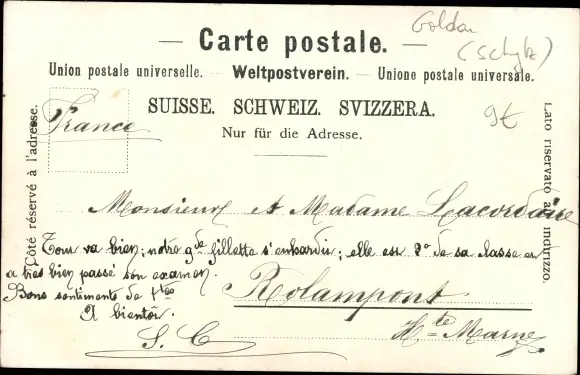 Goldau
(Schytz)
— Carte postale. —
Union postale universelle. — Weltpostverein. — Unione postale universale.
SUISSE. SCHWEIZ. SVIZZERA.
9€
Nur für die Adresse.
Côté réservé à l'adresse.
Lato riservato all' indirizzo.
France
Monsieur et Madame Lacordaire
Tout va bien; notre gde fillette s'enhardit; elle est 2e de sa classe et
a très bien passé son examen.
Bons sentiments de ttes
A bientôt.
S. C
Rolampont
Hte Marne